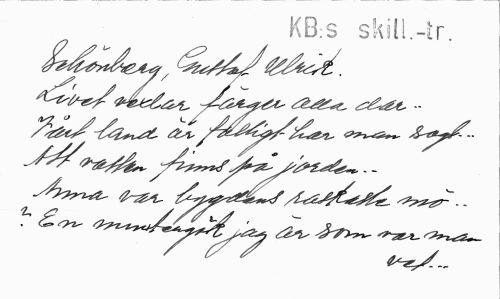 KB:s skill.-tr.
Schönberg, Gustaf Ulrik.
Livet växlar färger alla dar..
Vårt land är fattigt har man sagt...
Att vatten finns på jorden...
Anna var bygdens raskaste mö..
? En muntergök jag är som var man
vet...